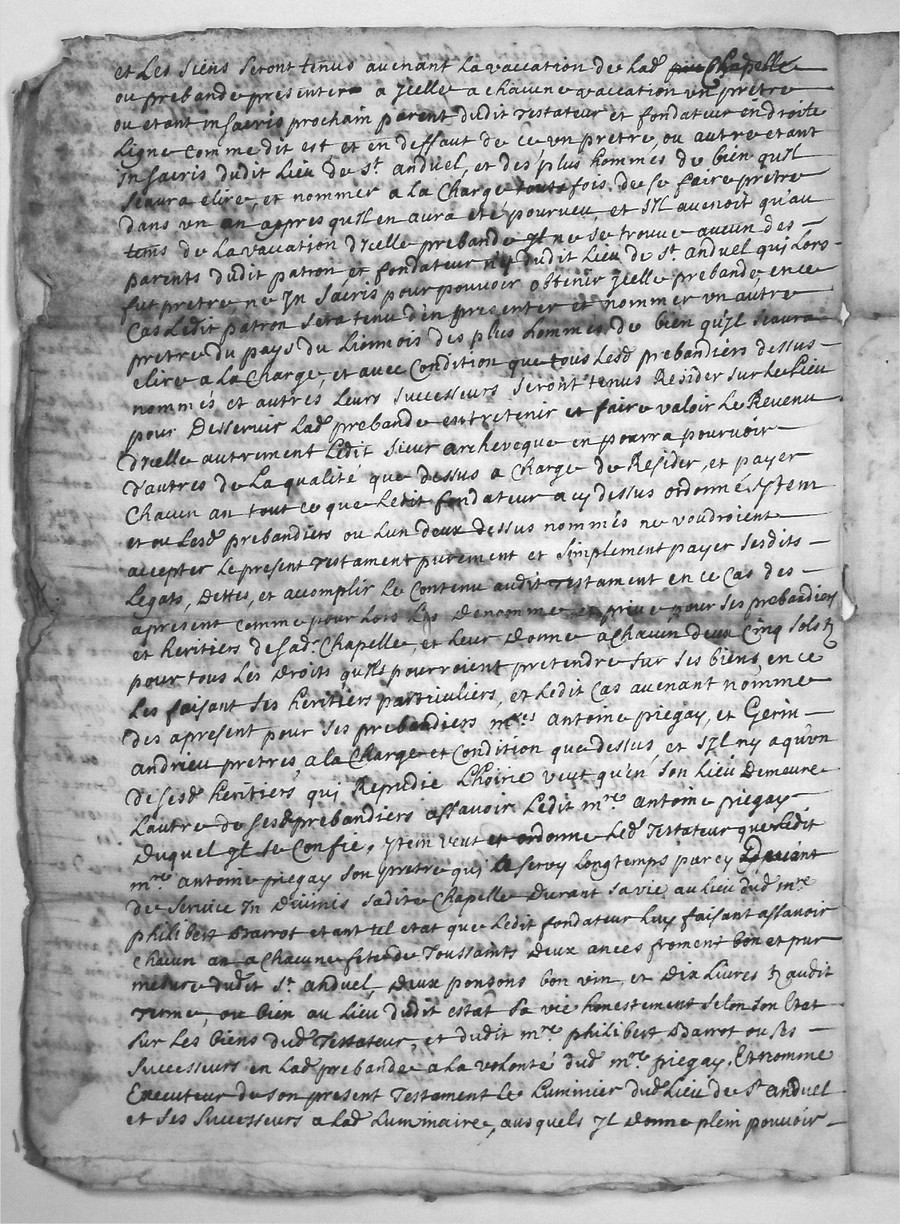 et Les siens seront tenus avenant La vaccation de Lad.e Chapelle
ou prebande presenter a ycelle a chacune vaccation un pretre
ou etant in sacris prochain parent dudit testateur et fondateur en droite
Ligne comme dit est et en deffaut de ce un pretre, ou autre etant
in sacris dudit Lieu de st. anduel, et des plus hommes de bien qu'il
scaura elire, et nommer a la Charge toutefois de se faire pretre
dans un an appres qu'il en aura eté pourveu, et s'il avenoit qu'au
tems de La vaccation d'icelle prebande yl ne se trouve aucun des
parents dudit patron et fondateur ny dudit Lieu de st. anduel qui Lors
fut pretre, ne in sacris pour pouvoir obtenir ycelle prebande, en ce
Cas Ledit patron sera tenu d'en presenter et nommer un autre
pretre du pays du Lionnois des plus hommes de bien qu'yl scaura
elire a La Charge, et avec Condition que tous Lesd prebandiers dessus
nommés et autres Leurs successeurs seront tenus Resider sur Le Lieu
pour Desservir Lad.e prebande entretenir et faire valoir Le Revenu
d'icelle autrement Ledit sieur archeveque en pourra pourvoir
d'autres de La qualité que dessus a Charge de Resider, et payer
Chacun an tout ce que Ledit fondateur a cy dessus ordonné, ytem
et ou Lesd. prebandiers ou Lun deux dessus nommés ne voudroient
accepter Le present testament purement et simplement payer sesdits
Legats, Dettes, et accomplir Le Contenu audit testament en ce Cas des
apresent comme pour Lors Les Denomme et prive pour ses prebandiers
et heritiers de sad.e Chapelle, et Leur Donne a chacun deux Cinq sols tz
pour tous Les Droits qu'ils pourroient pretendre sur ses biens, en ce
Les faisant ses heritiers particuliers, et Ledit Cas avenant nomme
des apresent pour ses prebandiers mres antoine piegay, et Gerin
andrieu pretres a la Charge et Condition que dessus et s'yl n'y a qu'un
de sesd. heritiers qui Repudie L'hoirie veut qu'en son Lieu Demeure
L'autre de sesd. prebandiers assavoir Ledit mre antoine piegay
Duquel yl se Confie, ytem veut et ordonne Led. testateur que Ledit
mre antoine piegay son pretre qui a servy Longtemps par cy Devant
de service in Divinis sadite Chapelle Durant sa vie au Lieu dud. mre
philibert Barrot etant tel etat que Ledit fondateur Luy faisant assavoir
Chacun an a Chacune fete de Toussaints Deux ances froment bon et pur
mesure dudt st. anduel Deux ponsons bon vin, et Dix Livres tz audit
terme, ou bien au Lieu dudit estat sa vie honestement selon son Etat
sur Les biens dud. testateur, et dudit mre philibert Barrot ou ses
successeurs en Lad.e prebande a La volonté dud. mre piegay. Et nomme
Executeur de son present Testament Le Luminier dud. Lieu de st anduel
et ses successeurs a Lad.e Luminaire, ausquels yl donne plein pouvoir